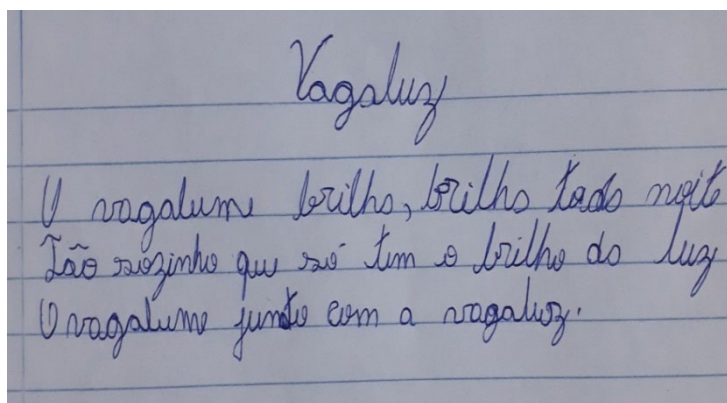 Vagaluz
O vagalume brilha, brilha toda noite
Tão sozinho que só tem o brilho da luz
O vagalume junto com a vagaluz.